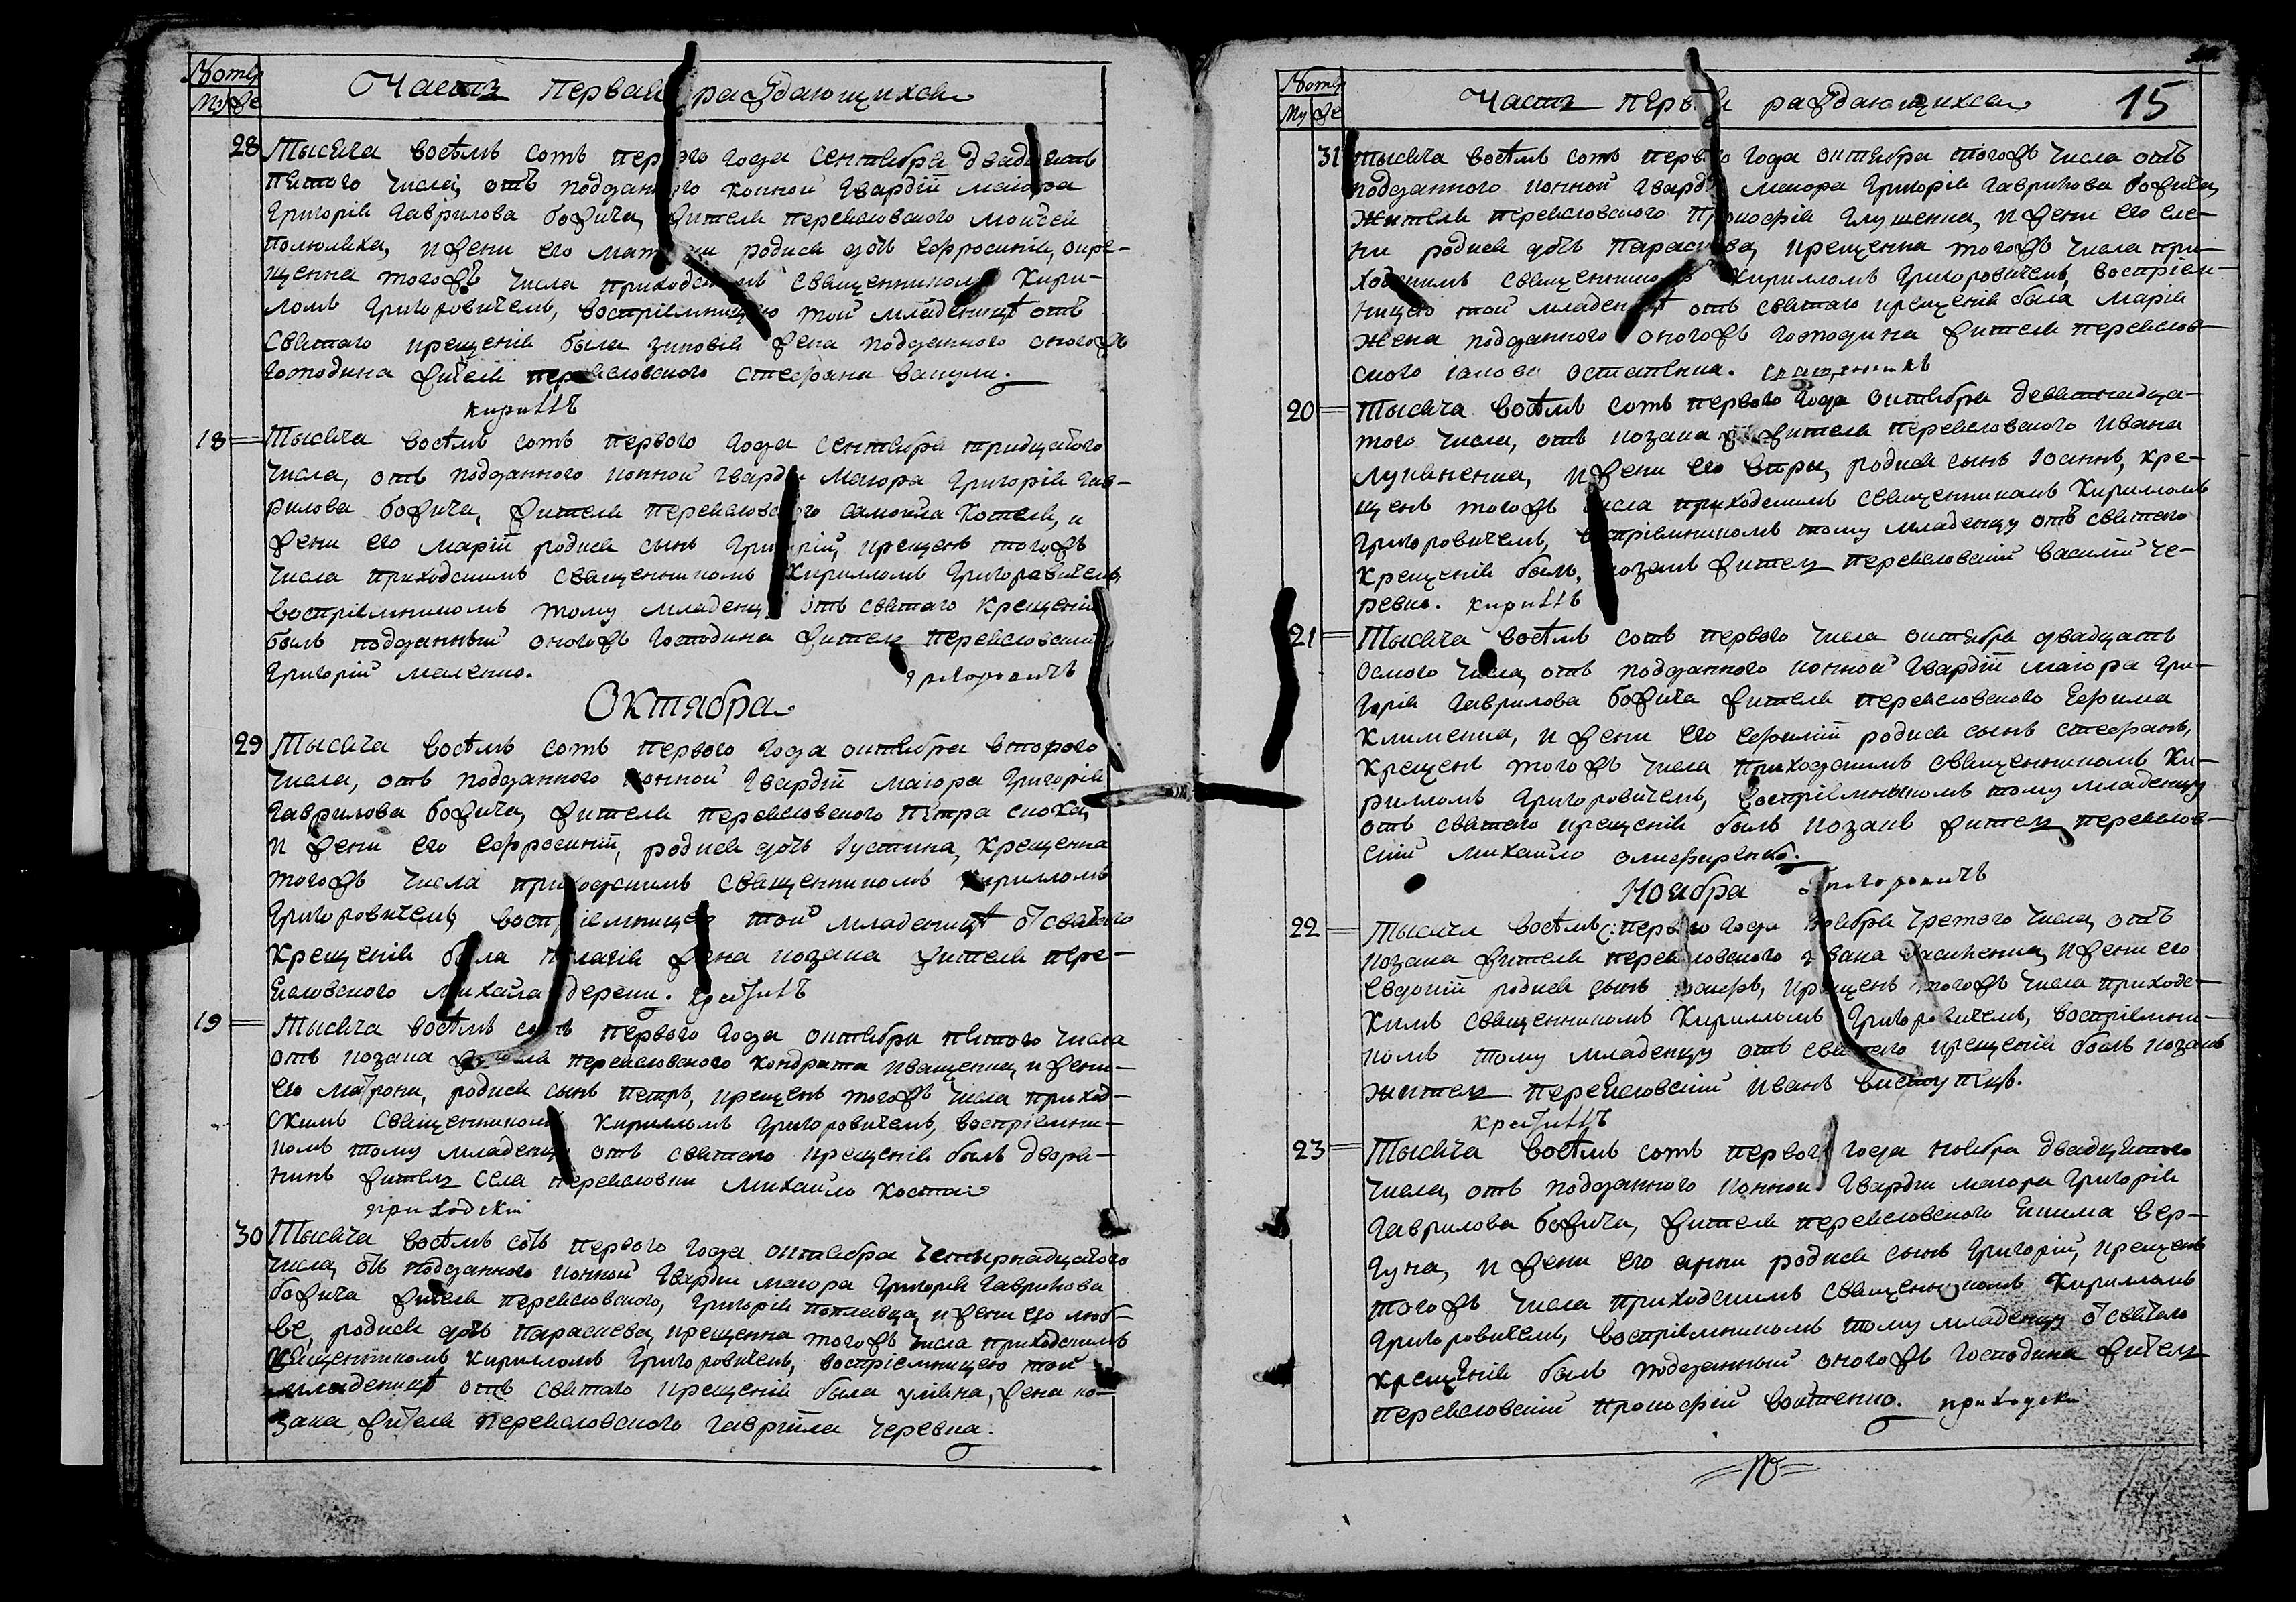 Номер
Му Же
Часть первая раждающихся
28 Тысяча восемь сотъ первого года сентября двадцать
пятого числа, отъ подданного конной гвардіи маіора
Григорія Гаврилова божича, жителя переясловского моисея
и жени его родися дочь Ефросинія, окре-
щенна тогожъ числа приходскимъ священникомъ Кири-
ломъ Григоровичемъ, воспріемницею той младеницѣ отъ
святаго крещенія была зиновія жена подданного оногожъ
господина жителя переясловского стефана вакули.
кириллъ
18 Тысяча восемь сотъ первого года сентября тридцатого
числа, отъ подданного конной гвардіи маіора Григорія Гав-
рилова божича, жителя переясловского самойла Котеля, и
жени его маріи родися сынъ Григорій, крещенъ тогожъ
числа приходскимъ священникомъ Кирилломъ Григоровичемъ,
воспріемникомъ тому младенцу отъ святаго крещенія
былъ подданный оногожъ господина житель переясловскій
Григорій маленко. григоровичъ
Октября
29 Тысяча восемь сотъ первого года октября второго
числа, отъ подданного конной гвардіи маіора Григорія
Гаврилова божича, жителя переясловского Петра сноха,
и жени его Ефросиніи, родися дочь Іустина, крещенна
тогожъ числа приходскимъ священникомъ Кирилломъ
Григоровичемъ, воспріемницею той младеницѣ отъ святого
крещенія была Пелагія жена козака жителя пере-
ясловского Михайла дереки.
19 Тысяча восемь сотъ первого года октября пятого числа
отъ козака жителя переясловского кондрата иващенка, и жени
его матрони, родися сынъ петръ, крещенъ тогожъ числа приход-
скимъ священникомъ Кирилломъ Григоровичемъ, воспріемни-
комъ тому младенцу отъ святого крещенія былъ дворя-
нинъ житель села переясловки Михайло Костая
приходскій
30 Тысяча восемь сотъ первого года октября четырнадцатого
числа, отъ подданного конной гвардіи маіора Григорія Гаврилова
божича жителя переясловского, Григорія поплавца, и жени его люб-
ве, родися дочь параскева, крещенна тогожъ числа приходскимъ
священникомъ Кирилломъ Григоровичемъ, воспріемницею той
младеницѣ отъ святаго крещенія была уляна, жена ко-
зака жителя переясловского гавріила черевка.
Номер
Му Же
Часть первая раждающихся 15
31 Тысяча восемь сотъ первого года октября тогожъ числа отъ
подданного конной гвардіи маіора Григорія Гаврилова божича,
жителя переясловского Прокофія Глущенка, и жени его еле-
ни родися дочь Параскева, крещенна тогожъ числа при-
ходскимъ священникомъ Кирилломъ Григоровичемъ, воспріем-
ницею той младеницѣ отъ святаго крещенія была Марія
жена подданного оногожъ господина жителя переяслов-
ского іакова остапенка. священникъ
20 Тысяча восемь сотъ первого года октября девятнадца-
того числа, отъ козака жителя переясловского Ивана
Лукяненка, и жени его вѣры, родися сынъ Іоаннъ, кре-
щенъ тогожъ числа приходскимъ священникомъ Кирилломъ
Григоровичемъ, воспріемникомъ тому младенцу отъ святого
крещенія былъ, козакъ житель переясловскій василій че-
ревко. кириллъ
21 Тысяча восемь сотъ первого числа октября двадцать
осмого числа, отъ подданного конной гвардіи маіора Гри-
горія Гаврилова божича жителя переясловского Ефима
Клименка, и жени его Ефиміи родися сынъ стефанъ,
крещенъ тогожъ числа приходскимъ священникомъ Ки-
рилломъ Григоровичемъ, воспріемникомъ тому младенцу
отъ святого крещенія былъ козакъ житель переяслов-
скій Михайло олиференко.
Ноября григоровичъ
22 Тысяча восемь с: первого года ноября третого числа, отъ
козака жителя переясловского Ивана и жени его
Евдокіи родися сынъ крещенъ тогожъ числа приходс-
кимъ священникомъ Кирилломъ Григоровичемъ, воспріемни-
комъ тому младенцу отъ святого крещенія былъ козакъ
житель переясловскій иванъ
23 Тысяча восемь сотъ первого года ноября двадцятого
числа, отъ подданного конной гвардіи маіора Григорія
Гаврилова божича, жителя переясловского Екима вер-
гуна, и жени его анни родися сынъ Григорій, крещенъ
тогожъ числа приходскимъ священникомъ Кирилломъ
Григоровичемъ, воспріемникомъ тому младенцу отъ святого
крещенія былъ подданный оногожъ господина житель
переясловскій прокофій войтенко. приходскій